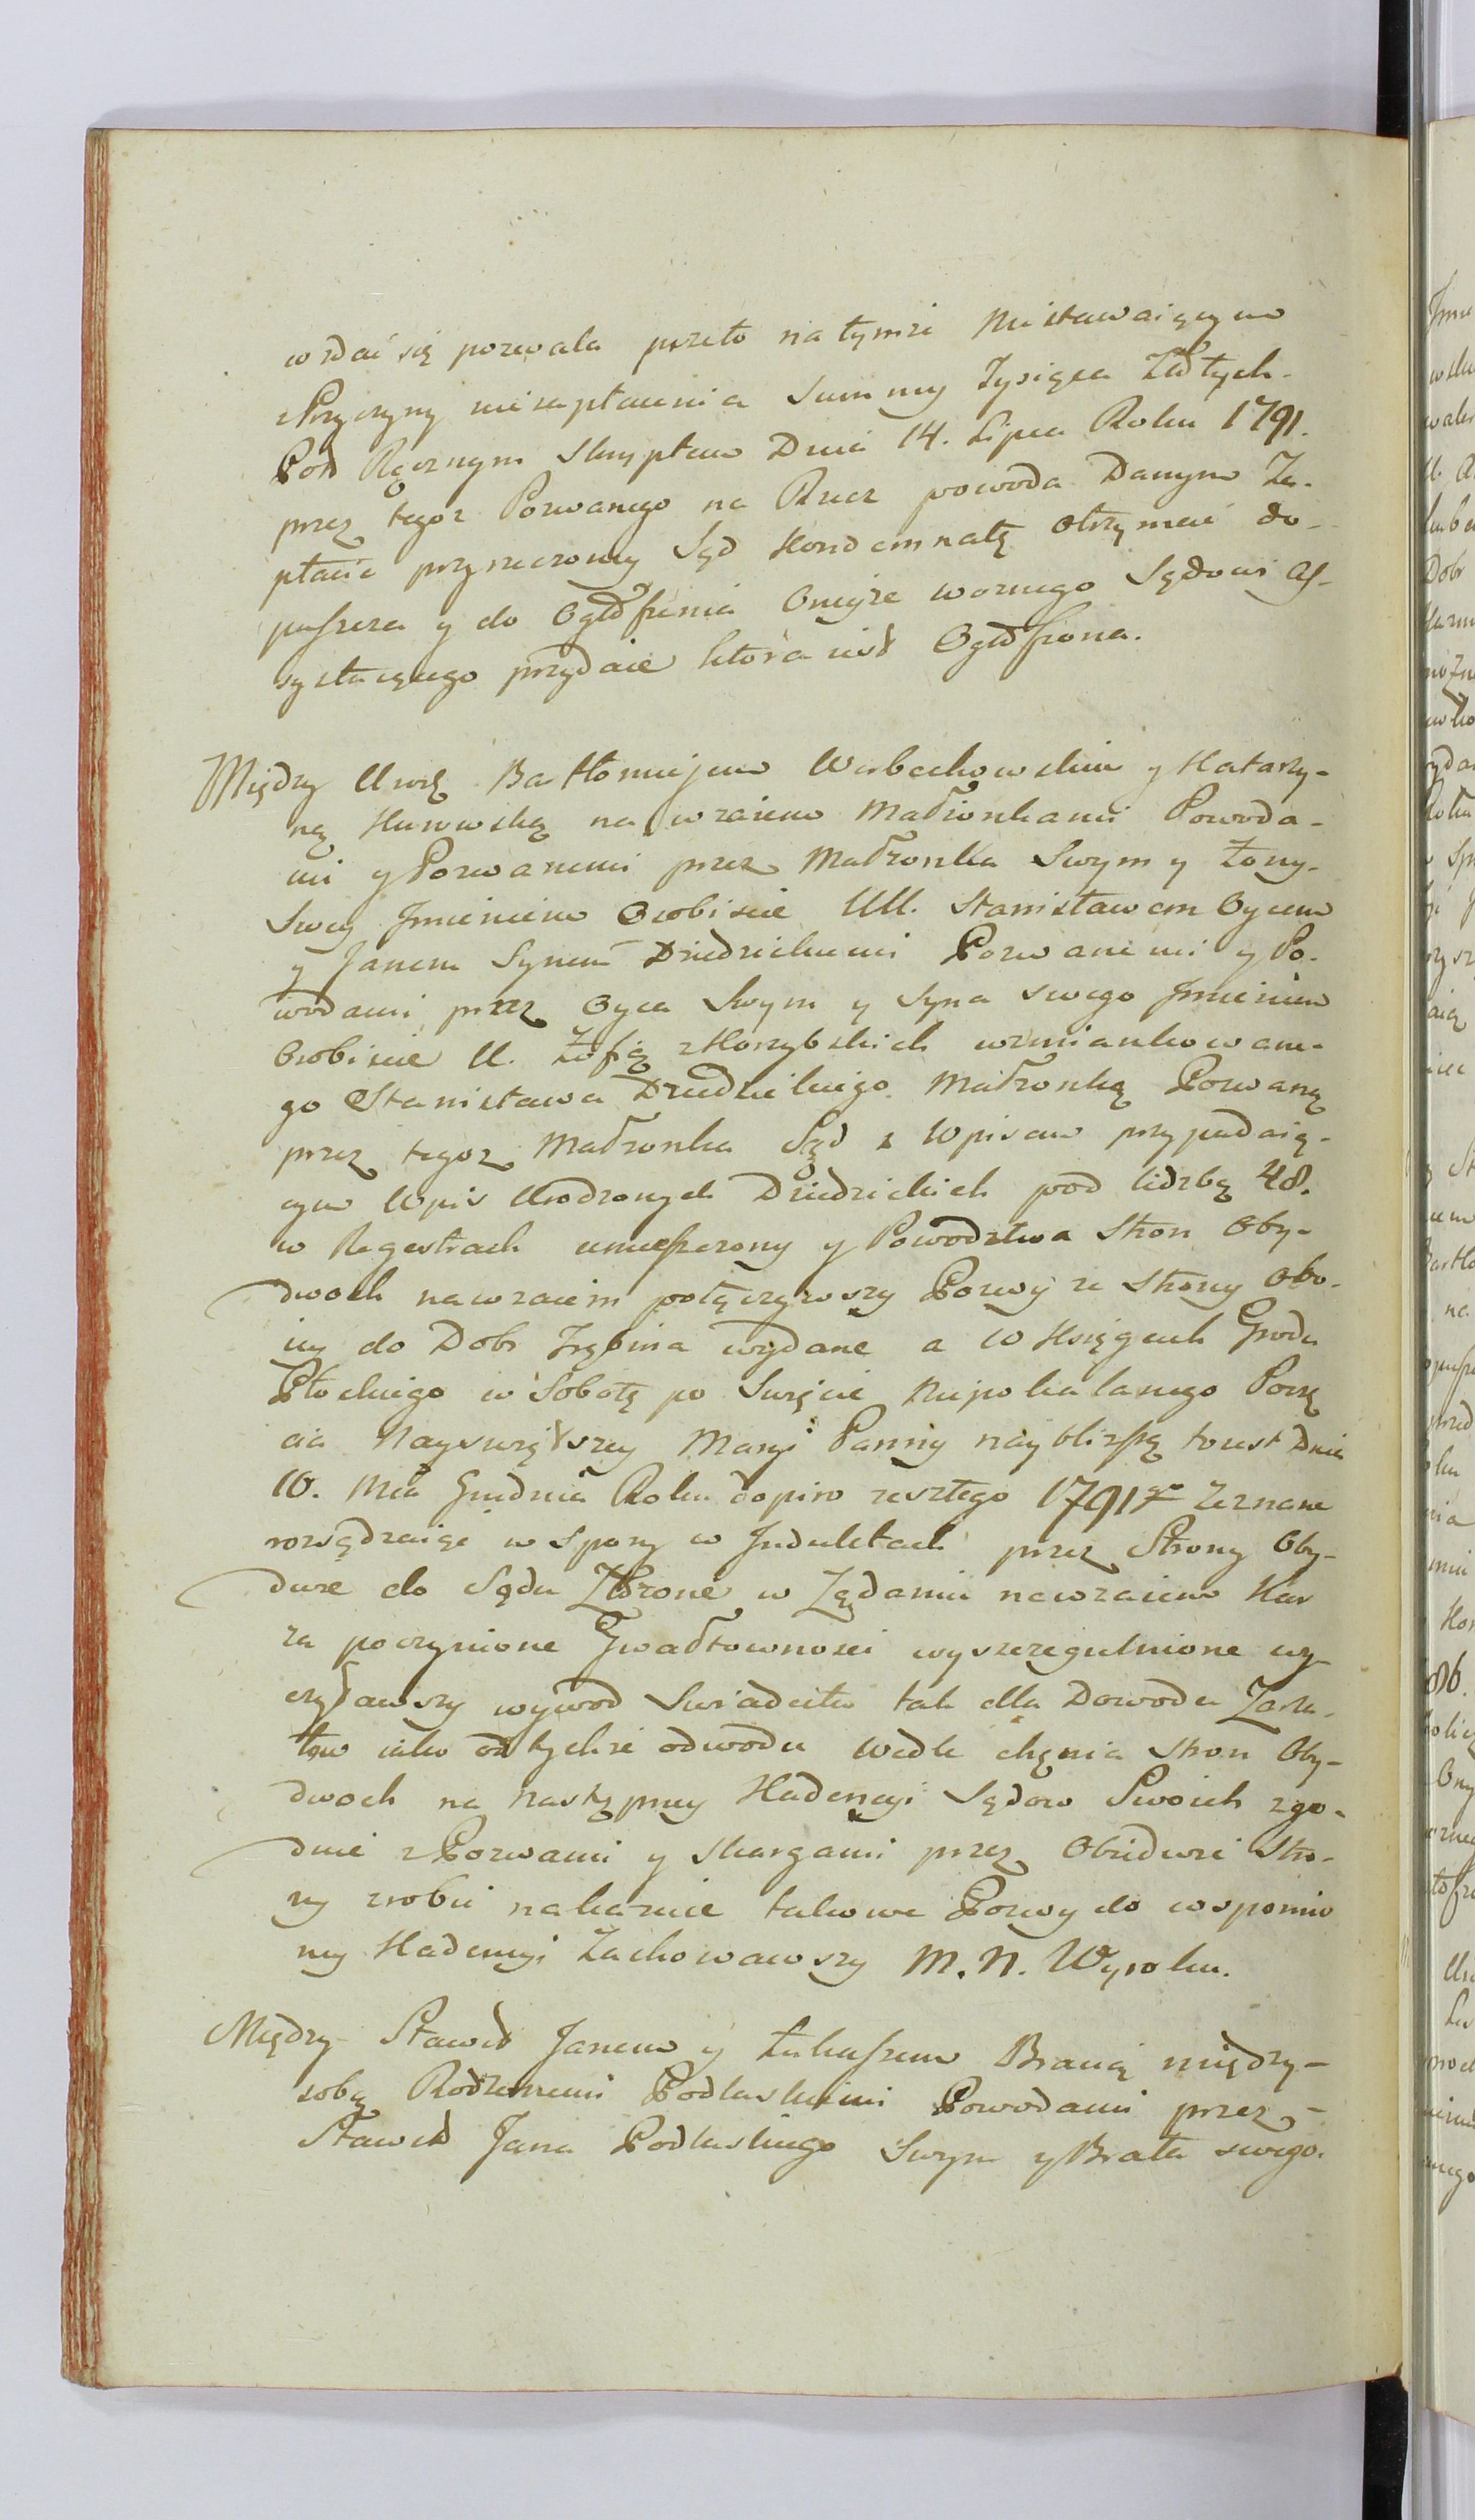 wdać się pozwala przeto na tymże Niestawaiącym
z Przyczyny niezapłacenia Summy Tysiąca Złotych
Pod Ręcznym Skryptem Dnia 14. Lipca Roku 1791.
przez tegoż Pozwanego na Rzecz powoda Danym Za-
płacić przyrzeczoney Sąd Kondemnatę otrzymać do-
puszcza y do Ogłoszenia Oneyże woznego Sądowi As-
systuiącego przydaie która iest Ogłoszona.
Między Urodz Bartłomiejem Wierbechowskim y Katarzy-
ną Kurowską nawzaiem Małżonkami Powoda-
mi y Pozwanemi przez Małżonka Swym y Żony
Swey Imieniem Osobiscie UU. Stanisławem Oycem
y Janem Synem Dziedzickiemi Pozwanemi y Po-
wodami przez Oyca Swym y Syna swego Imieniem
Osobiscie U. Zofią z Korzybskich wzmiankowane-
go Stanisława Dziedzickiego Małżonką Pozwaną
przez tegoż Małżonka Sąd z Wpisem przypadaią-
cym Wpis Urodzonych Dziedzickich pod liczbą 48.
w Regestrach umieszczony y Powodztwa Stron Oby-
dwoch nawzaiem połączywszy Pozwy ze Strony Obo-
iey do Dobr Trębina wydane a w Księgach Grodu
Płockiego w Sobotę po Święcie Niepokalanego Poczę
cia Nayswiętszey Maryi Panny nayblizszą to iest Dnia
10. Mca Grudnia Roku dopiro zeszłego 1791go Zeznane
rozsądzaiąc w spory w Induktach przez Strony Oby-
dwie do Sądu Złozone w Żądaniu nawzaiem Kar
za poczynione Gwałtownosci wyszczegulnione wy-
czytawszy wywod Swiadectw tak dla Dowodu Zarzu-
tow iako od tychże odwodu wedle chęcia Stron Oby-
dwoch na następney Kadencyi Sądow Swoich zgo-
dnie z Pozwami y Skargami przez Obiedwie Stro-
ny zrobić nakazuie takowe Pozwy do wspomnio
ney Kadencyi Zachowawszy M. N. Wyroku.
Między Sławet Janem y Łukaszem Bracią między
sobą Rodzonemi Podlaskiemi Powodami przez
Sławet Jana Podlaskiego Swym y Brata swego